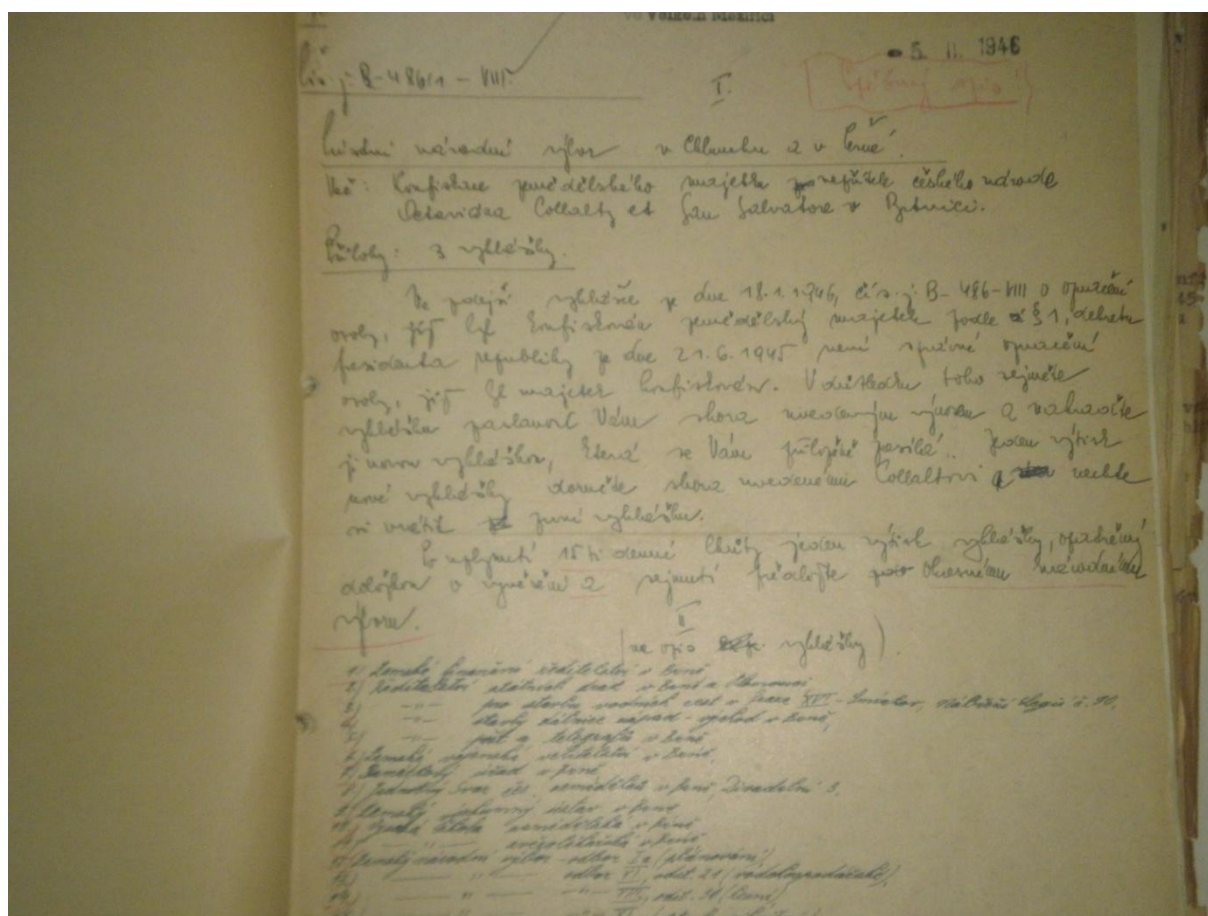 ve Velkém Meziříčí
- 5. II. 1946
Čís. j: B-486/1 - VIII.
I.
národní výbor v Chlumku a v
Věc: Konfiskace zemědělského majetku nepřítele českého národa
Collalto et San Salvatore v Brtnici.
Přílohy: 3 vyhlášky.
Ve zdejší vyhlášce ze dne 18.1.1946, čís. j: B-486-VIII o označení
osoby, jíž byl konfiskován zemědělský majetek podle § 1, dekretu
presidenta republiky ze dne 21.6.1945 není správné označení
osoby, jíž byl majetek konfiskován. V důsledku toho sejměte
vyhlášku zaslanou Vám shora uvedeným výnosem a nahraďte
ji novou vyhláškou, která se Vám přiloženě zasílá. Jeden výtisk
nové vyhlášky doručte shora uvedenému Collaltovi a nechte
si vrátit první vyhlášku.
Po uplynutí 15ti denní lhůty jeden výtisk vyhlášky, opatřený
doložkou o vyvěšení a sejmutí předložte Okresnímu národnímu
výboru.
II
(na opis vyhlášky)
1) Zemské finanční ředitelství v Brně
2) Ředitelství státních drah v Brně a Olomouci
3) -"- pro stavbu vodních cest v Praze XVI - Smíchov, nábřeží legií č. 90,
4) -"- stavby dálnice západ - východ v Brně,
5) -"- pošt a telegrafů v Brně
6) Zemské vojenské velitelství v Brně,
7) úřad v Brně,
8) Jednotný svaz čes. zemědělců v Brně, Divadelní 3,
9) Zemský ústav v Brně
10) Vysoká škola zemědělská v Brně
11) -"- zvěrolékařská v Brně
12) Zemský národní výbor - odbor (plánování)
13) -"- odbor VI, odděl. 21
14) -"- VIII, odděl. 31 (lesní)